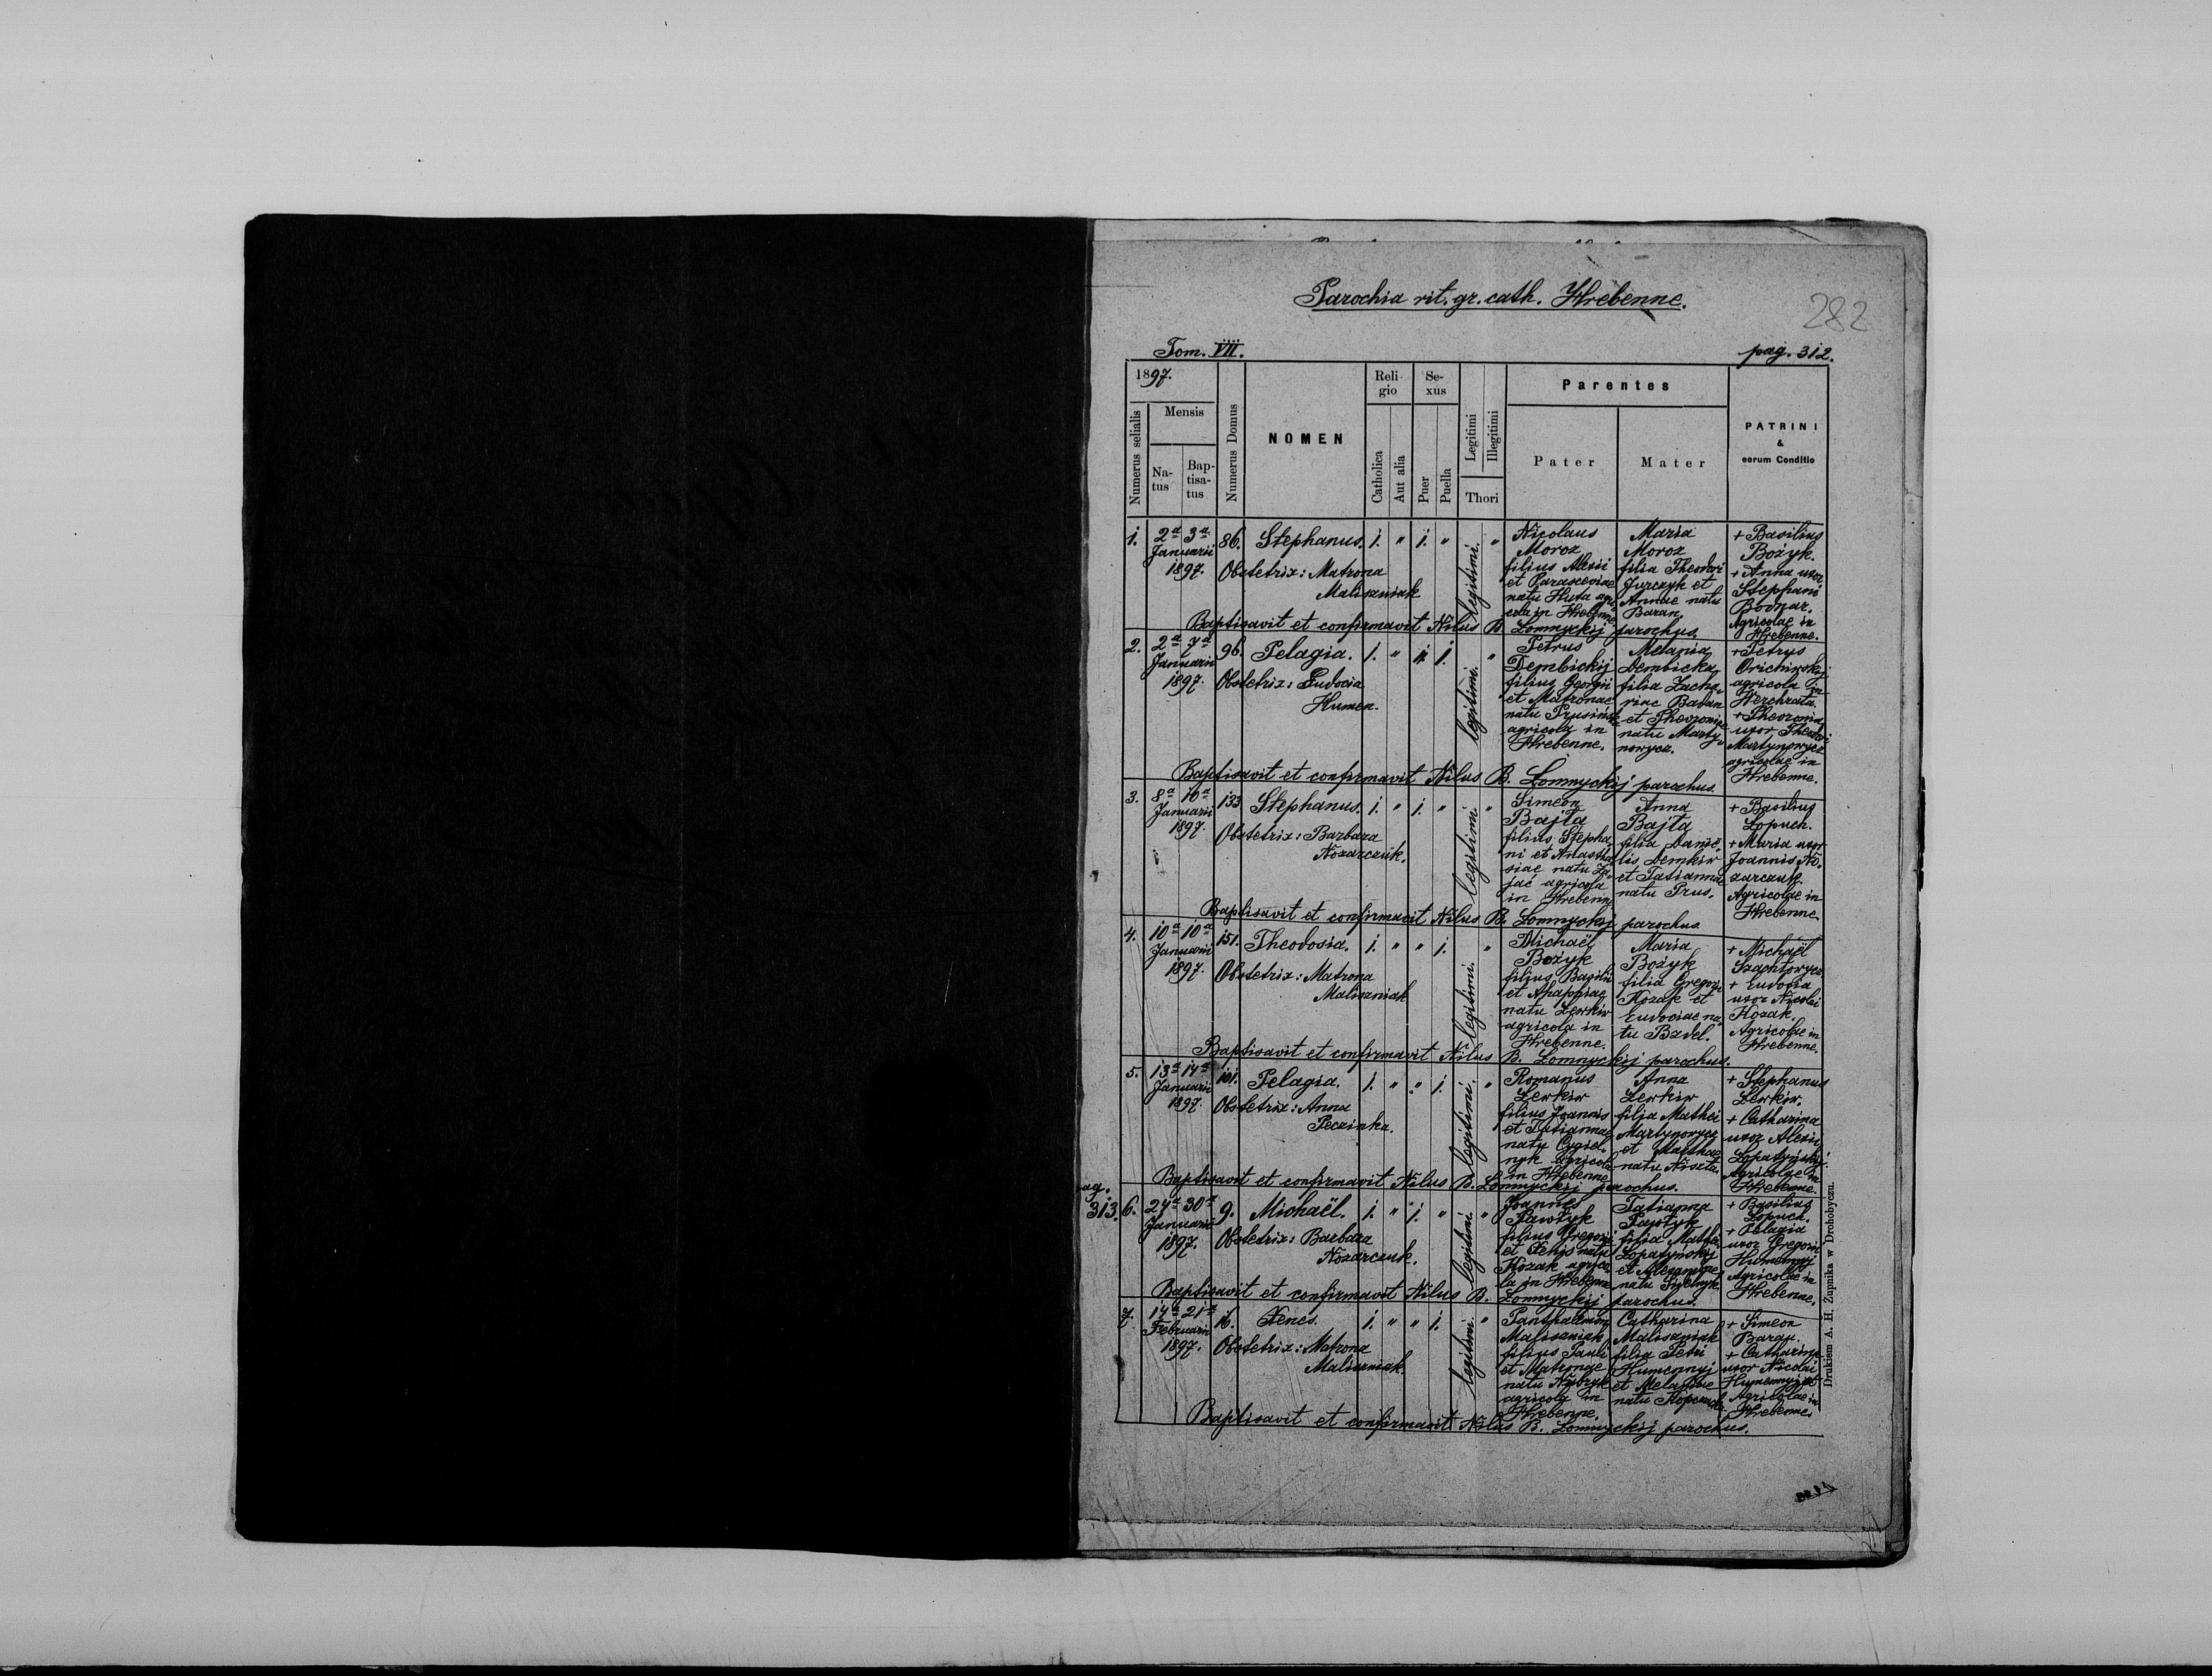 Parochia rit. gr. cath. Hrebenne.
282
Tom. VII. pag. 312.
1897.
Numerus serialis
Mensis
Na-
tus
Bap-
tisa-
tus
Numerus Domus
NOMEN
Reli-
gio
Catholica
Aut alia
Se-
xus
Puer
Puella
Legitimi
Illegitimi
Thori
Parentes
Pater
Mater
PATRINI
&
eorum Conditio
1. 2a 3a Januarii 1897. 86. Stephanus. 1. " 1. " legitimi. "
Obstetrix: Matrona
Maliszniak
Nicolaus
Moroz
filius Alexii
et Parasceviae
natu Huta agri-
cola in Hrebenne.
Maria
Moroz
filia Theodori
Jurczyk et
Annae natu
Baran.
+ Basilius
Bożyk.
+ Anna uxor
Stephani
Bodnar.
Agricolae in
Hrebenne.
Baptisavit et confirmavit Nilus B. Lomnyckij parochus.
2. 2a 7a Januarii 1897. 96. Pelagia. 1. " 1. legitimi. "
Obstetrix: Eudocia
Humen.
Petrus
Dembickij
filius Georgii
et Matronae
natu
agricola in
Hrebenne.
Melania
Dembicka
filia Zacha-
riae Baban
et Theozoniae
natu Marty-
norycz.
+ Petrus
agricola in
Werchrata.
+ Theozonia
uxor Theodori
Martynorycz
agricolae in
Hrebenne.
Baptisavit et confirmavit Nilus B. Lomnyckij parochus.
3. 8a 10a Januarii 1897. 133 Stephanus. 1. " 1. " legitimi. "
Obstetrix: Barbara
Nozarczuk.
Simeon
Bajta
filius Stepha-
ni et Anasta-
siae natu Za-
jać agricola
in Hrebenne
Anna
Bajta
filia Danie-
lis Demkiw
et Tatianna
natu Prus.
+ Basilius
Lopuch.
+ Maria uxor
Joannis No-
zarczuk.
Agricolae in
Hrebenne.
Baptisavit et confirmavit Nilus B. Lomnyckij parochus
4. 10a 10a Januarii 1897. 151. Theodosia. 1. " " 1. legitimi. "
Obstetrix: Matrona
Maliszniak
Michaël
Bożyk
filius Basilii
et Ahappiae
natu Lewkiw
agricola in
Hrebenne.
Maria
Bożyk
filia Gregorii
Kozak et
Eudociae na-
tu Bzdel.
+ Michaël
+ Eudocia
uxor Nicolai
Kozak.
Agricolae in
Hrebenne.
Baptisavit et confirmavit Nilus B. Lomnyckij parochus.
5. 13a 14a Januarii 1897. 101. Pelagia. 1. " " 1. legitimi. "
Obstetrix: Anna
Peczinka.
Romanus
Lewkiw
filius Joannis
et Tatiannae
natu
agricola
in Hrebenne
Anna
Lewkiw
filia Mathei
Martynorycz
et Marthae
natu
+ Stephanus
Lewkiw.
+ Catharina
uxor Alexii
Lopatynskij.
Agricolae in
Hrebenne.
Baptisavit et confirmavit Nilus B. Lomnyckij parochus.
pag. 313.
6. 24a 30a Januarii 1897. 9. Michaël. 1. " 1. " legitimi. "
Obstetrix: Barbara
Nozarczuk.
Joannes
Pawłyk
filius Gregorii
et Xenis natu
Kozak agrico-
la in Hrebenne
Tatianna
Pawłyk
filia Mathei
Lopatynskij
et
natu
+ Basilius
Lopuch.
+ Pelagia
uxor Gregorii
Humennyj
Agricolae in
Hrebenne.
Baptisavit et confirmavit Nilus B. Lomnyckij parochus.
7. 14a 21a Februarii 1897. 16. Xenes. 1. " " 1. legitimi. "
Obstetrix: Matrona
Maliszniak.
Panthaleimon
Maliszniak
filius Pauli
et Matronae
natu
agricola in
Hrebenne.
Catharina
Maliszniak
filia Petri
Humennyj
et Melaniae
natu
+ Simeon
Baran.
+ Catharina
uxor Nicolai
Humennyj
Agricolae in
Hrebenne.
Baptisavit et confirmavit Nilus B. Lomnyckij parochus.
Drukiem A. H. Żupnika w Drohobyczu.